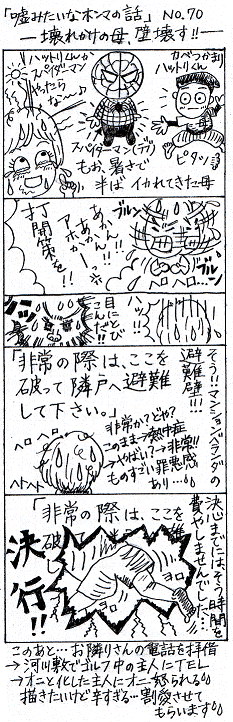 「嘘みたいなホンマの話」 NO.70
―壊れかけの母、壁壊す!!―
ハットリくんか
スパイダーマン
やったら
な~
かべつかまり
ハットリくん
ピタッ
スパイダーマン(デブ)
もお、暑さで
半ばイカれてきた母
ブルン
あかん、
あかんーっ
アホかーっ
打開策を!!
ヘロヘロ…
ハッ!!
目に
とび
こんだ
そう!!マンションベランダの
避難壁!!!
「非常の際は、ここを
破って隣戸へ避難
して下さい。」
ヘロヘロ
非常か?どや?
このまま→熱中症
→やばい?→非常!!
ものすごい罪悪感
あり…
決心までには、そう時間を
費やしませんでした…
「非常の際は、ここを
破
決行!!
ヨロ
ヨロ
このあと…お隣りさんの電話を拝借
→河川敷でゴルフ中の主人にTEL
→オニと化した主人にオニ怒られる
描きたいけど辛すぎる…割愛させて
もらいます